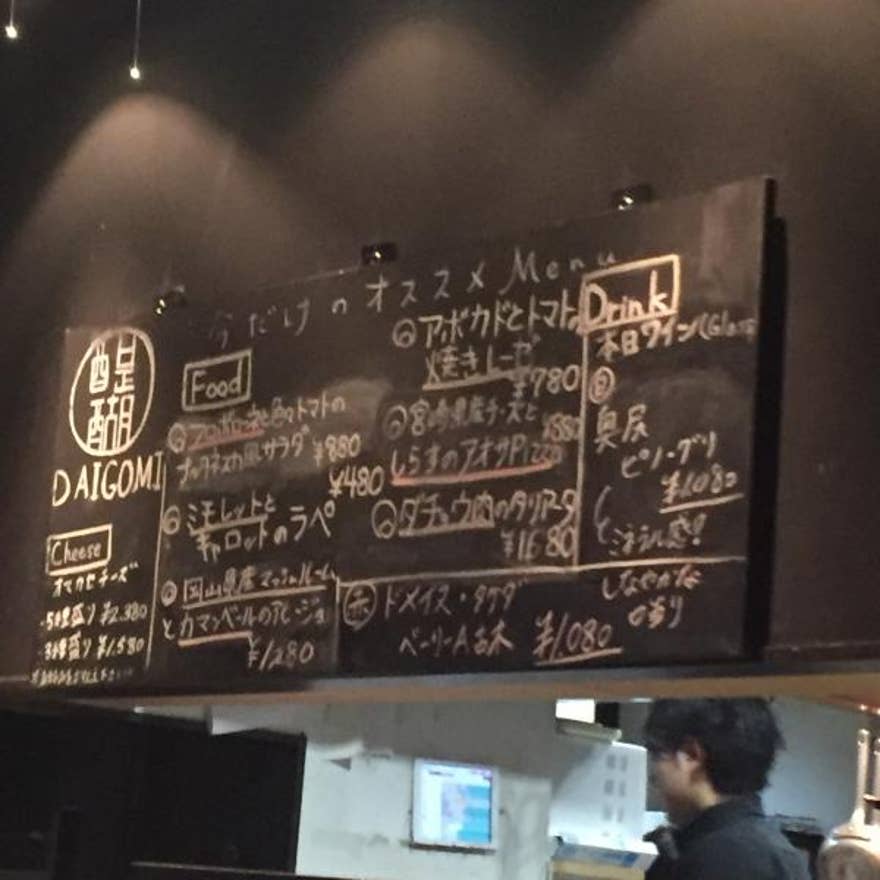 今だけのオススメMenu
醍醐
DAIGOMI
Cheese
オマカセチーズ
5種盛り ¥2,380
3種盛り ¥1,580
Food
トマトの
風サラダ ¥880
ミモレットと ¥480
キャロットのラペ
岡山県産マッシュルーム
とカマンベールのアヒージョ
¥1280
アボカドとトマトの
焼きチーズ
¥780
宮崎県産チーズと
しらすのアオサPizza
ダチョウ肉のタリアータ
¥1680
Drink
本日ワイン(Glass
白
ピノ・グリ
¥1,080
ミネラル感!
しなやかな
香り
赤 ドメイヌ・タケダ
ベーリーA古木 ¥1,080